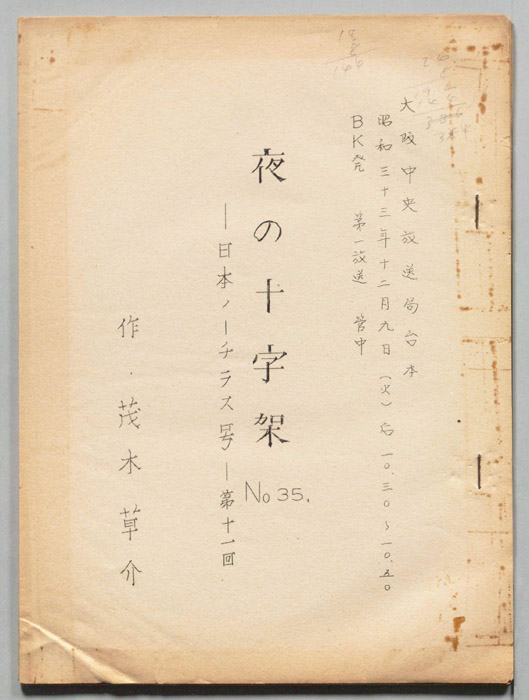 大阪中央放送局台本
昭和三十三年十二月九日（火）后一〇.三〇～一〇.五〇
BK発 第一放送 管中
夜の十字架
No 35.
―日本ノーチラス号―第十一回
作・茂木草介